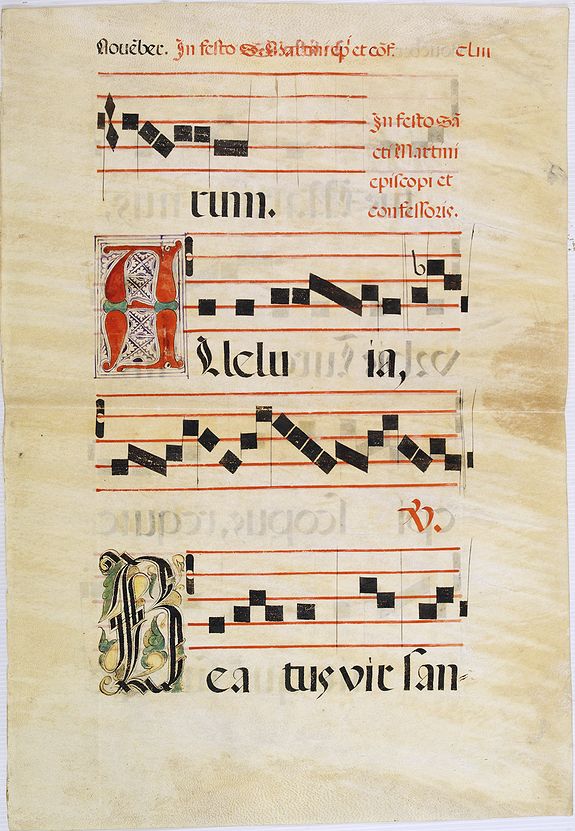 Nouẽber. In festo S. Martini ep̃i et cõf. cliii
rum.
In festo Sã
cti Martini
episcopi et
confessoris.
Alleluia,
℣.
Beatus vir san-